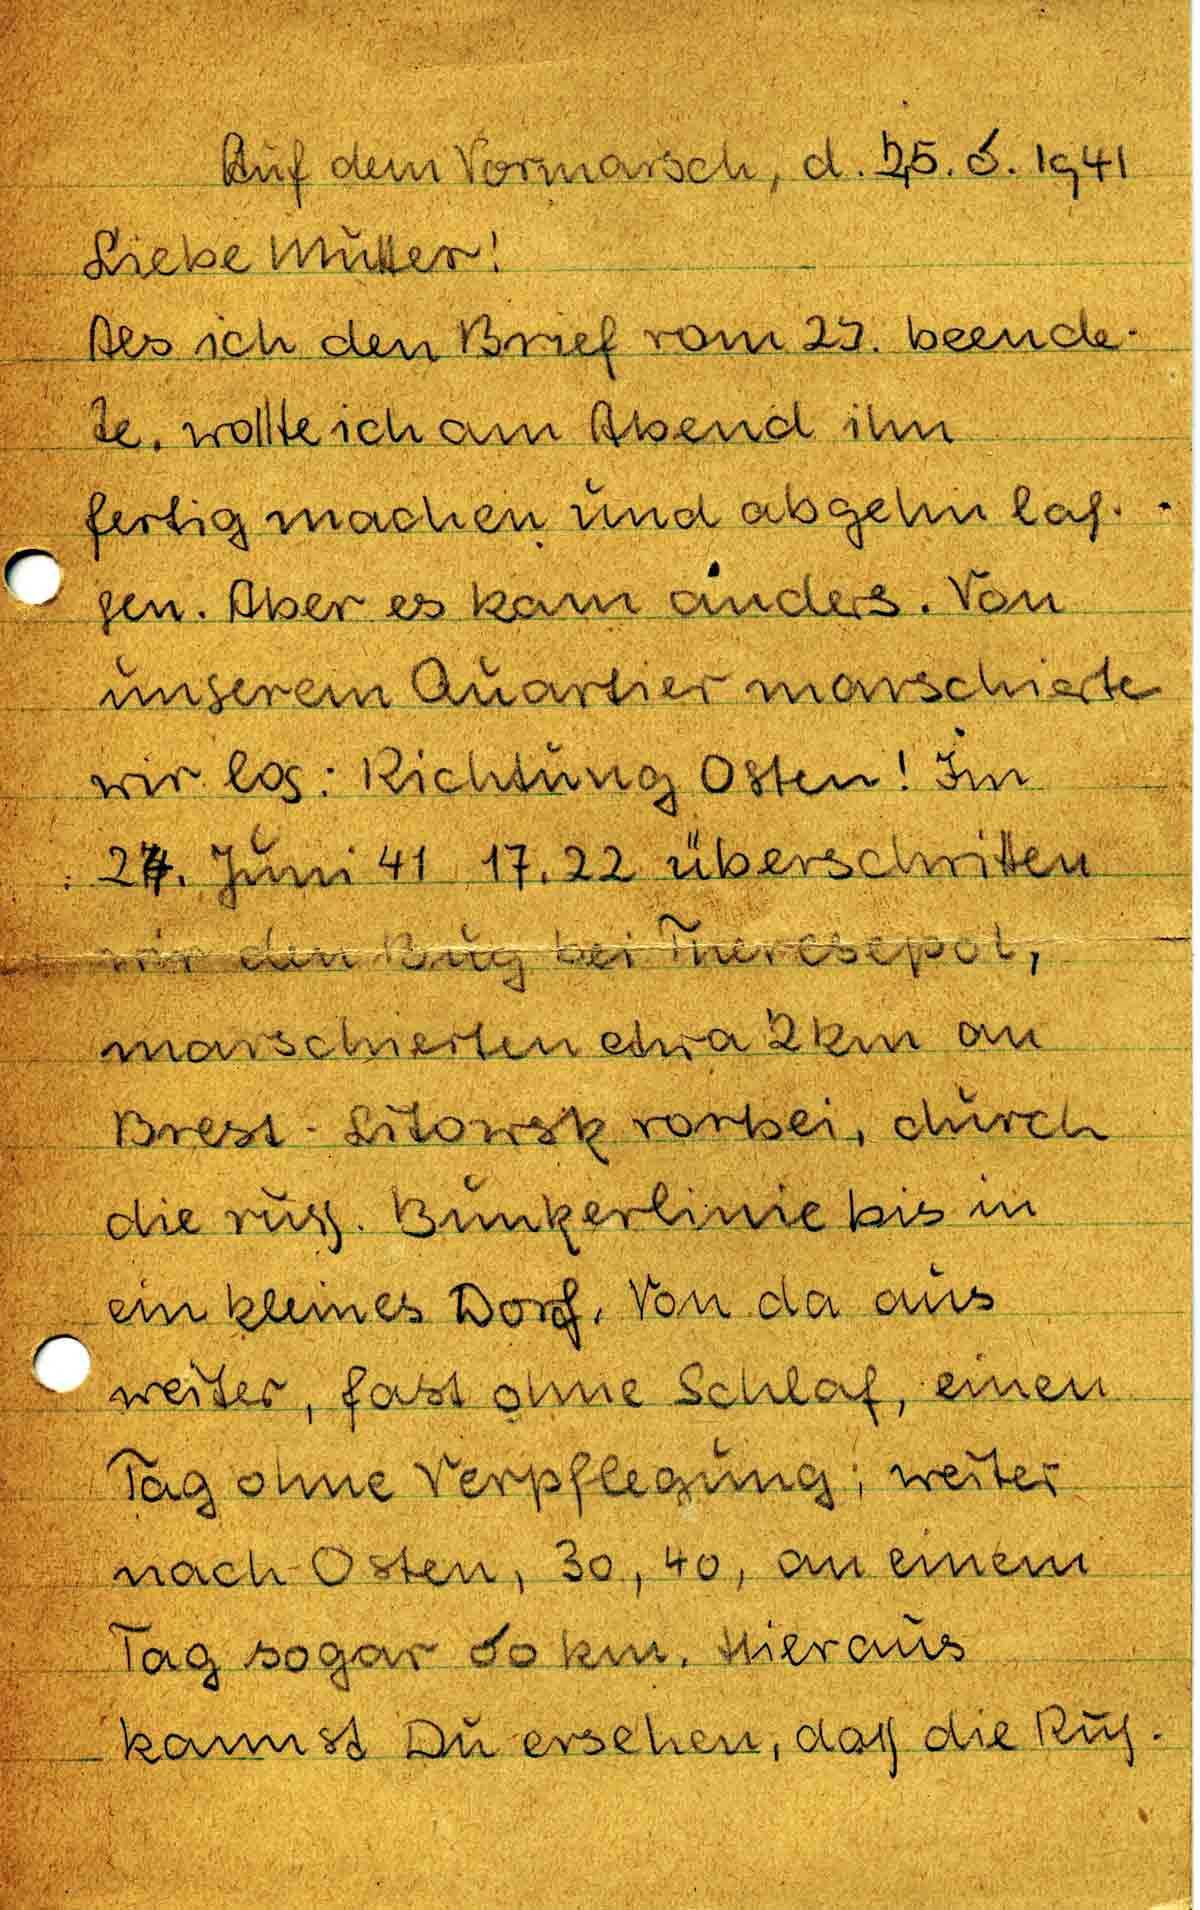 Auf dem Vormarsch, d. 25. 6. 1941
Liebe Mutter!
Als ich den Brief vom 23. beende-
te, wollte ich am Abend ihn
fertig machen und abgehn las-
sen. Aber es kam anders. Von
unserem Quartier marschierte
wir los: Richtung Osten! Im
24. Juni 41 17.22 überschritten
wir den Bug bei Theresepol,
marschierten etwa 2 km an
Brest-Litowsk vorbei, durch
die russ. Bunkerlinie bis in
ein kleines Dorf. Von da aus
weiter, fast ohne Schlaf, einen
Tag ohne Verpflegung; weiter
nach Osten, 30, 40, an einem
Tag sogar 60 km. Hieraus
kannst Du ersehen, dass die Rus-